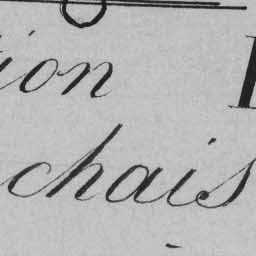 ion
chais